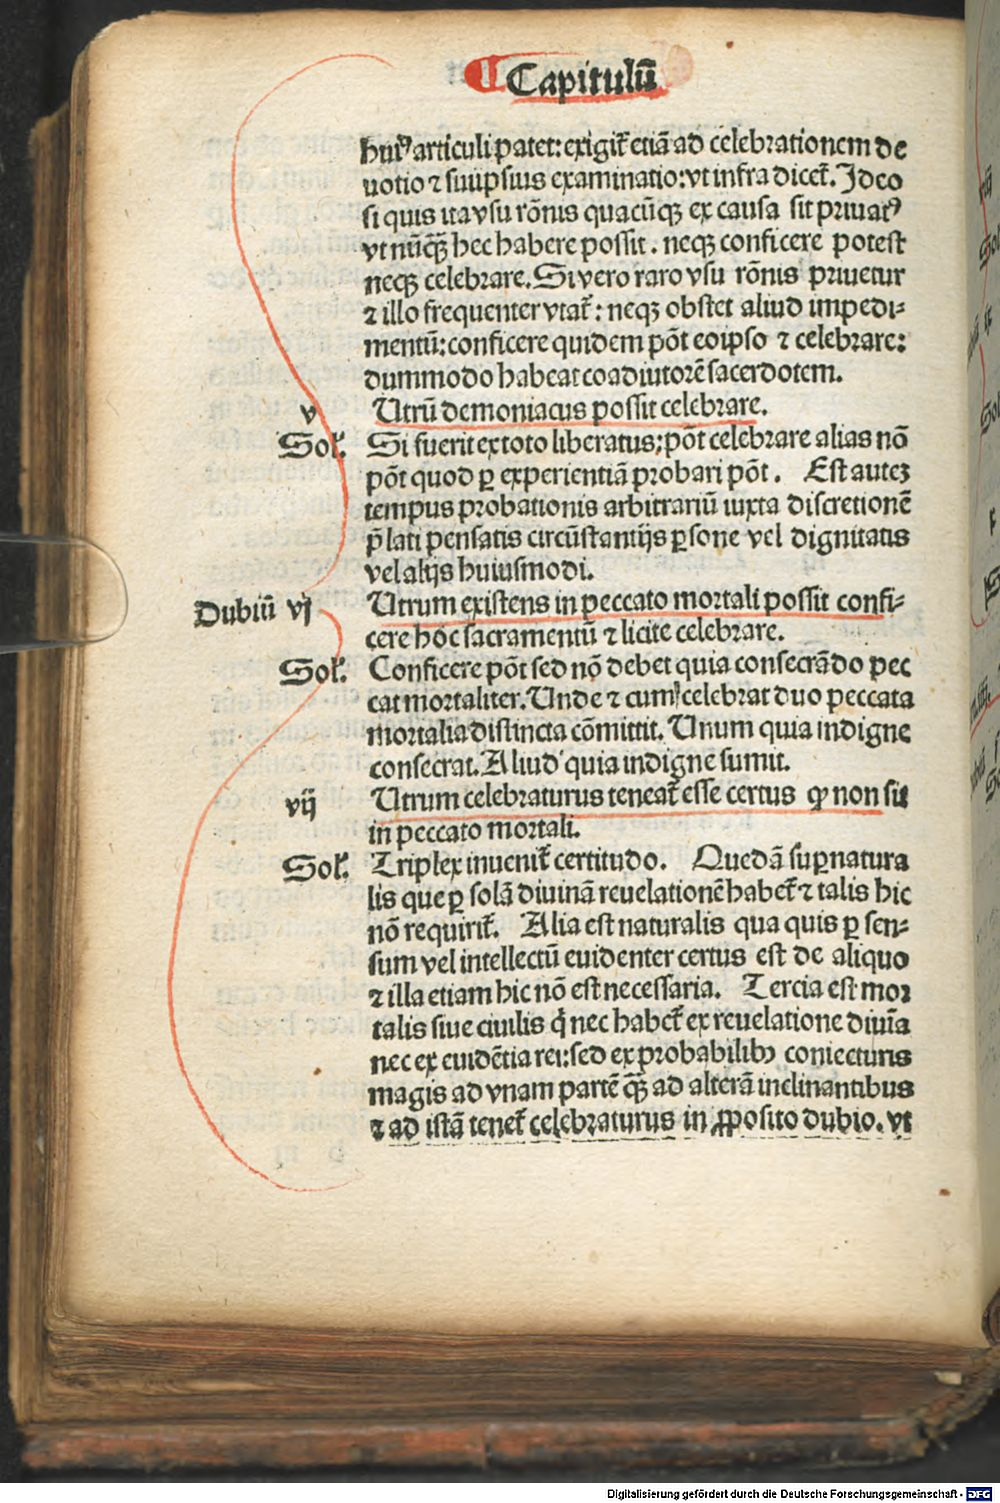 Capitulū
huiꝰ articuli patet: exigit̃ etiā ad celebrationem de
uotio ⁊ suiipsius examinatio: vt infra dicet̃. Ideo
si quis ita vsu rōnis quacūqꝫ ex causa sit priuatꝰ
vt nūqꝫ̄ hec habere possit. neqꝫ conficere potest
neqꝫ celebrare. Si vero raro vsu rōnis priuetur
⁊ illo frequenter vtat̃: neqꝫ obstet aliud impedi⸗
mentū: conficere quidem pōt eoipso ⁊ celebrare:
dummodo habeat coadiutorē sacerdotem.
v Utrū demoniacus possit celebrare.
Sol'. Si fuerit ex toto liberatus: pōt celebrare alias nō
pōt quod ꝑ experientiā probari pōt. Est auteꝫ
tempus probationis arbitrariū iuxta discretionē
p̄lati pensatis circūstantijs ꝑsone vel dignitatis
vel alijs huiusmodi.
Dubiū vj Utrum existens in peccato mortali possit confi⸗
cere hoc sacramentū ⁊ licite celebrare.
Sol'. Conficere pōt sed nō debet quia consecrādo pec
cat mortaliter. Unde ⁊ cum celebrat duo peccata
mortalia distincta cōmittit. Unum quia indigne
consecrat. Aliud quia indigne sumit.
vij Utrum celebraturus teneat̃ esse certus ꝙ non sit
in peccato mortali.
Sol'. Triplex inuenit̃ certitudo. Quedā suꝑnatura
lis que ꝑ solā diuinā reuelationē habet̃ ⁊ talis hic
nō requirit̃. Alia est naturalis qua quis ꝑ sen⸗
sum vel intellectū euidenter certus est de aliquo
⁊ illa etiam hic nō est necessaria. Tercia est mor
talis siue ciuilis q̄ nec habet̃ ex reuelatione diuīa
nec ex euidētia rei: sed ex probabilibꝫ coniecturis
magis ad vnam partē qꝫ̄ ad alterā inclinantibus
⁊ ad istā tenet̃ celebraturus in ꝓposito dubio. vt
Digitalisierung gefördert durch die Deutsche Forschungsgemeinschaft - DFG